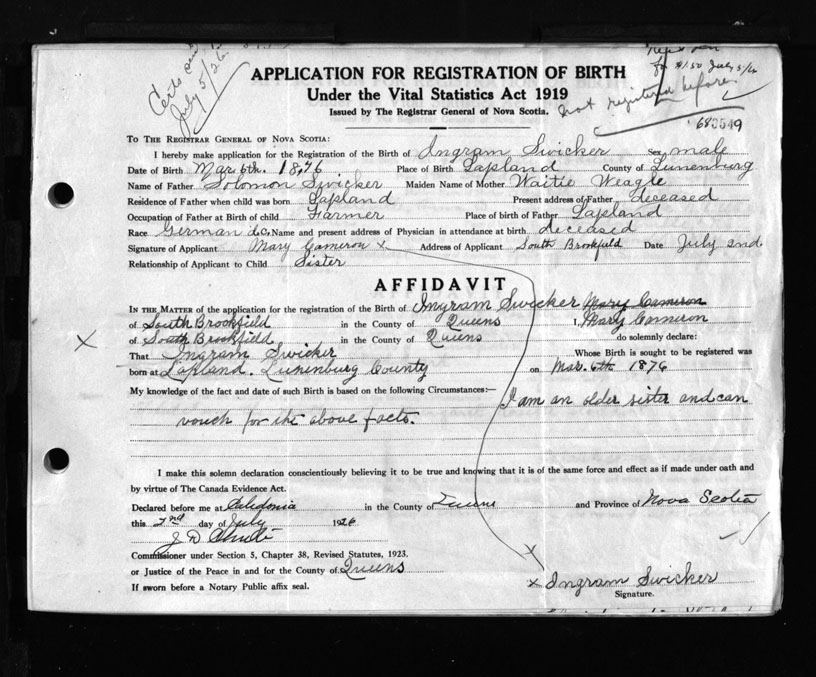 Certs
July 5/26
for $1.50 July 5/26
not registered before
APPLICATION FOR REGISTRATION OF BIRTH
Under the Vital Statistics Act 1919
Issued by The Registrar General of Nova Scotia.
TO THE REGISTRAR GENERAL OF NOVA SCOTIA:
I hereby make application for the Registration of the Birth of Ingram Swicker Sex male
Date of Birth Mar 6th. 1876 Place of Birth Lapland County of Lunenburg
Name of Father Solomon Swicker Maiden Name of Mother Waitie Weagle
Residence of Father when child was born Lapland Present address of Father deceased
Occupation of Father at Birth of child Farmer Place of birth of Father Lapland
Race German Name and present address of Physician in attendance at birth deceased
Signature of Applicant Mary Cameron x Address of Applicant South Brookfield Date July 2nd.
Relationship of Applicant to Child Sister
AFFIDAVIT
IN THE MATTER of the application for the registration of the Birth of Ingram Swicker Mary Cameron
of South Brookfield in the County of Queens I, Mary Cameron
x of South Brookfield in the County of Queens do solemnly declare:
That Ingram Swicker Whose Birth is sought to be registered was
born at Lapland. Lunenburg County on Mar. 6th. 1876
My knowledge of the fact and date of such Birth is based on the following Circumstances:—
I am an older sister and can
vouch for the above facts.
I make this solemn declaration conscientiously believing it to be true and knowing that it is of the same force and effect as if made under oath and
by virtue of The Canada Evidence Act.
Declared before me at Caledonia in the County of Queens and Province of Nova Scotia
this 2nd day of July 1926
Commissioner under Section 5, Chapter 38, Revised Statutes, 1923.
or Justice of the Peace in and for the County of Queens
If sworn before a Notary Public affix seal.
x
x Ingram Swicker
Signature.